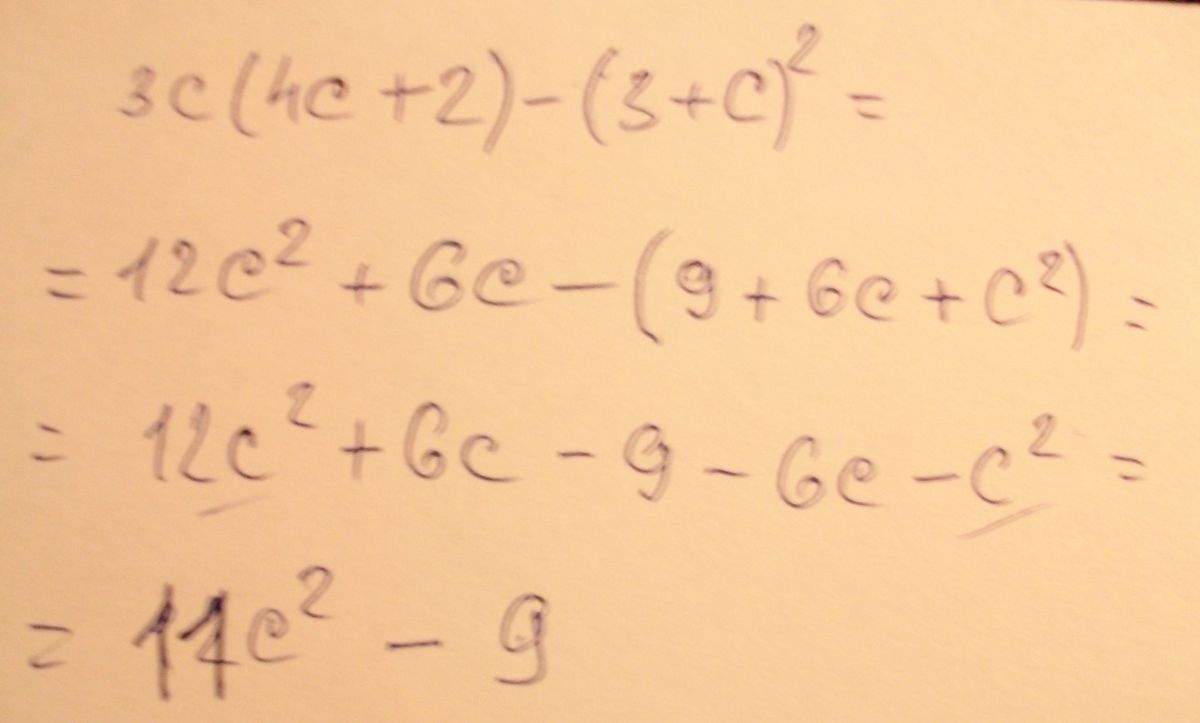 3c(4c+2)-(3+c)²=
=12c²+6c-(9+6c+c²)=
=12c²+6c-9-6c-c²=
=11c²-9